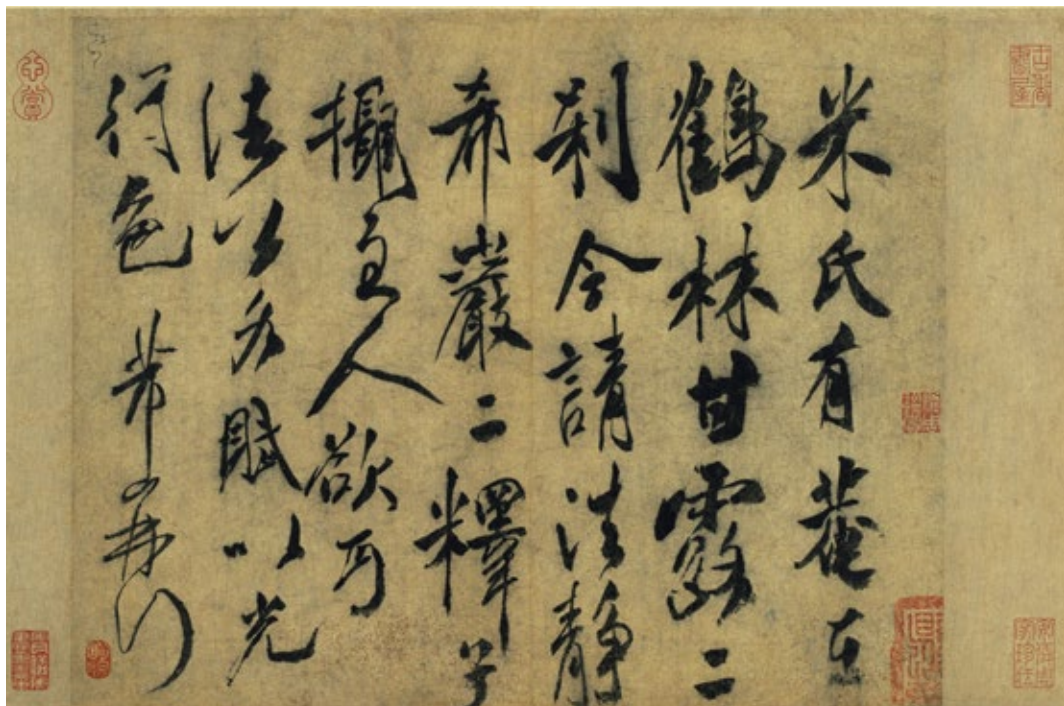 米氏有菴在
鶴林甘露二
剎今請法靜
希巖二釋子
攝主人欲可
公各賦以光
行色芾再拜